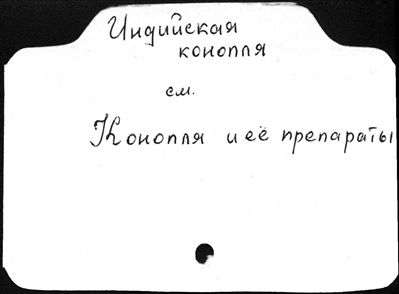 Индийская
конопля
см.
Конопля и её препараты